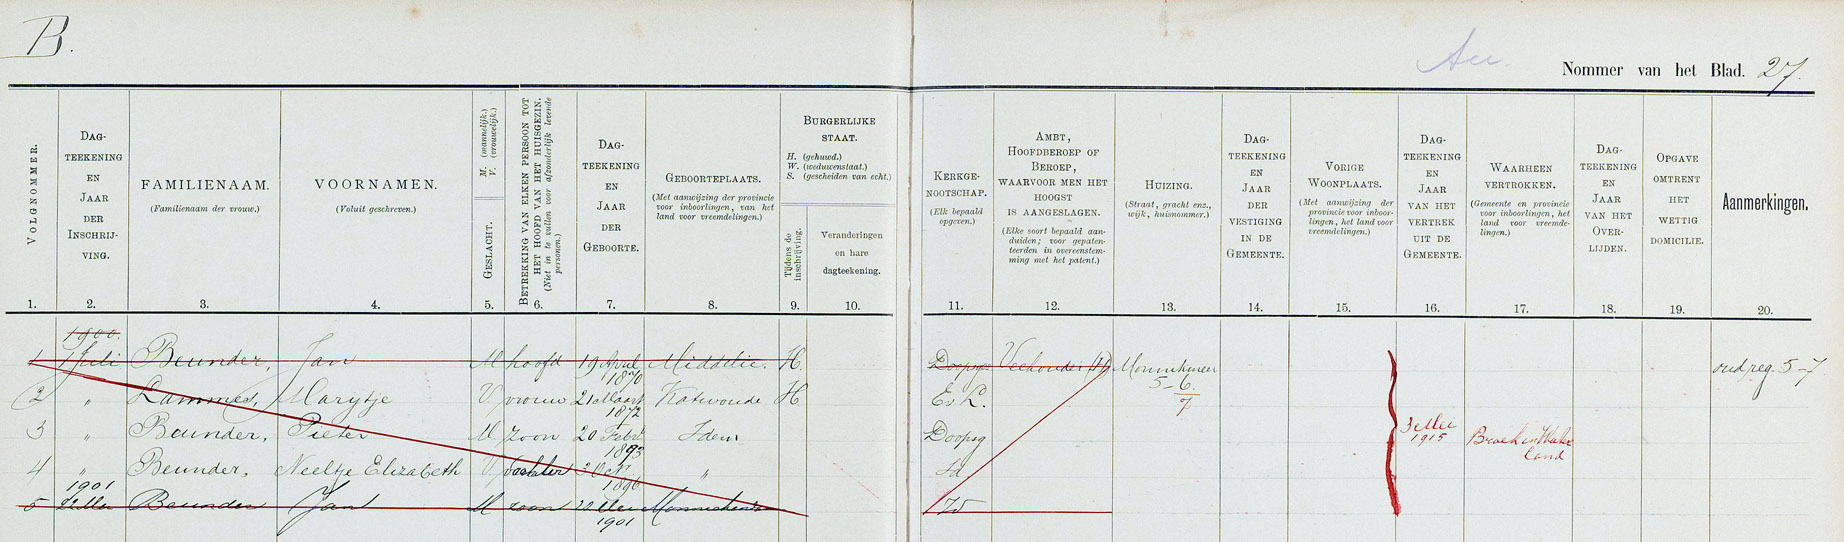 B.
Au.
Nommer van het Blad. 27.
VOLGNOMMER.
DAG-
TEEKENING
EN
JAAR
DER
INSCHRIJ-
VING.
FAMILIENAAM.
(Familienaam der vrouw.)
VOORNAMEN.
(Voluit geschreven.)
GESLACHT. M. (mannelijk.)
V. (vrouwelijk.)
BETREKKING VAN ELKEN PERSOON TOT
HET HOOFD VAN HET HUISGEZIN.
(Niet in te vullen voor afzonderlijk levende
personen.)
DAG-
TEEKENING
EN
JAAR
DER
GEBOORTE.
GEBOORTEPLAATS.
(Met aanwijzing der provincie
voor inboorlingen, van het
land voor vreemdelingen.)
BURGERLIJKE
STAAT.
H. (gehuwd.)
W. (weduwenstaat.)
S. (gescheiden van echt.)
Tijdens de
inschrijving.
Veranderingen
en hare
dagteekening.
KERKGE-
NOOTSCHAP.
(Elk bepaald
opgeven.)
AMBT,
HOOFDBEROEP OF
BEROEP,
WAARVOOR MEN HET
HOOGST
IS AANGESLAGEN.
(Elke soort bepaald aan-
duiden; voor gepaten-
teerden in overeenstem-
ming met het patent.)
HUIZING.
(Straat, gracht enz.,
wijk, huisnommer.)
DAG-
TEEKENING
EN
JAAR
DER
VESTIGING
IN DE
GEMEENTE.
VORIGE
WOONPLAATS.
(Met aanwijzing der
provincie voor inboor-
lingen, het land voor
vreemdelingen.)
DAG-
TEEKENING
EN
JAAR
VAN HET
VERTREK
UIT DE
GEMEENTE.
WAARHEEN
VERTROKKEN.
(Gemeente en provincie
voor inboorlingen, het
land voor vreemde-
lingen.)
DAG-
TEEKENING
EN
JAAR
VAN HET
OVER-
LIJDEN.
OPGAVE
OMTRENT
HET
WETTIG
DOMICILIE.
Aanmerkingen.
1. 2. 3. 4. 5. 6. 7. 8. 9. 10. 11. 12. 13. 14. 15. 16. 17. 18. 19. 20.
1900.
1 1 Juli Beunder, Jan M hoofd 19 April Middelie. H. Doopsg. Veehouder (H) Monnikmeer oud reg. 5-7
1870 5-6.
7
2 " Lammes, Marytje V. vrouw 21 Maart Katwoude H Ev. L.
1872
3 " Beunder, Pieter M zoon 20 Febr Idem Doopsg 3 Mei
1893 1915 Broek in Water
land
4 " Beunder, Neeltje Elizabeth V. dochter Oct. " Id
1901 1896
5 22 Mei Beunder Jan M zoon Mei Monnickendam Id
1901